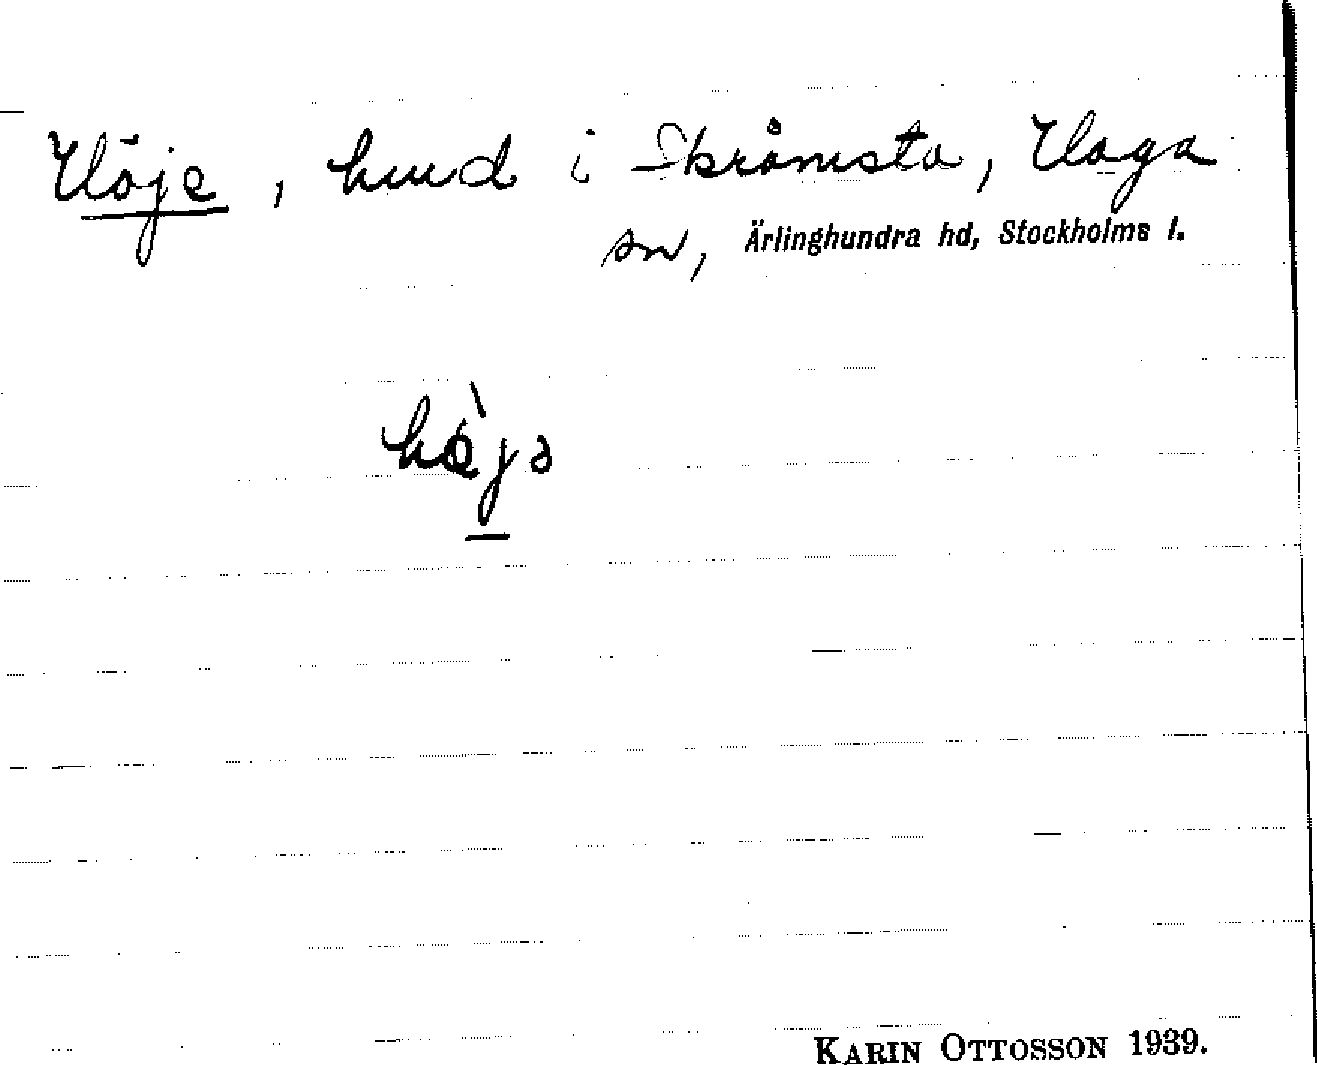 Höje, hund i Skråmsta, Haga
sn, Ärlinghundra hd, Stockholms l.
hø̀jə
KARIN OTTOSSON 1939.